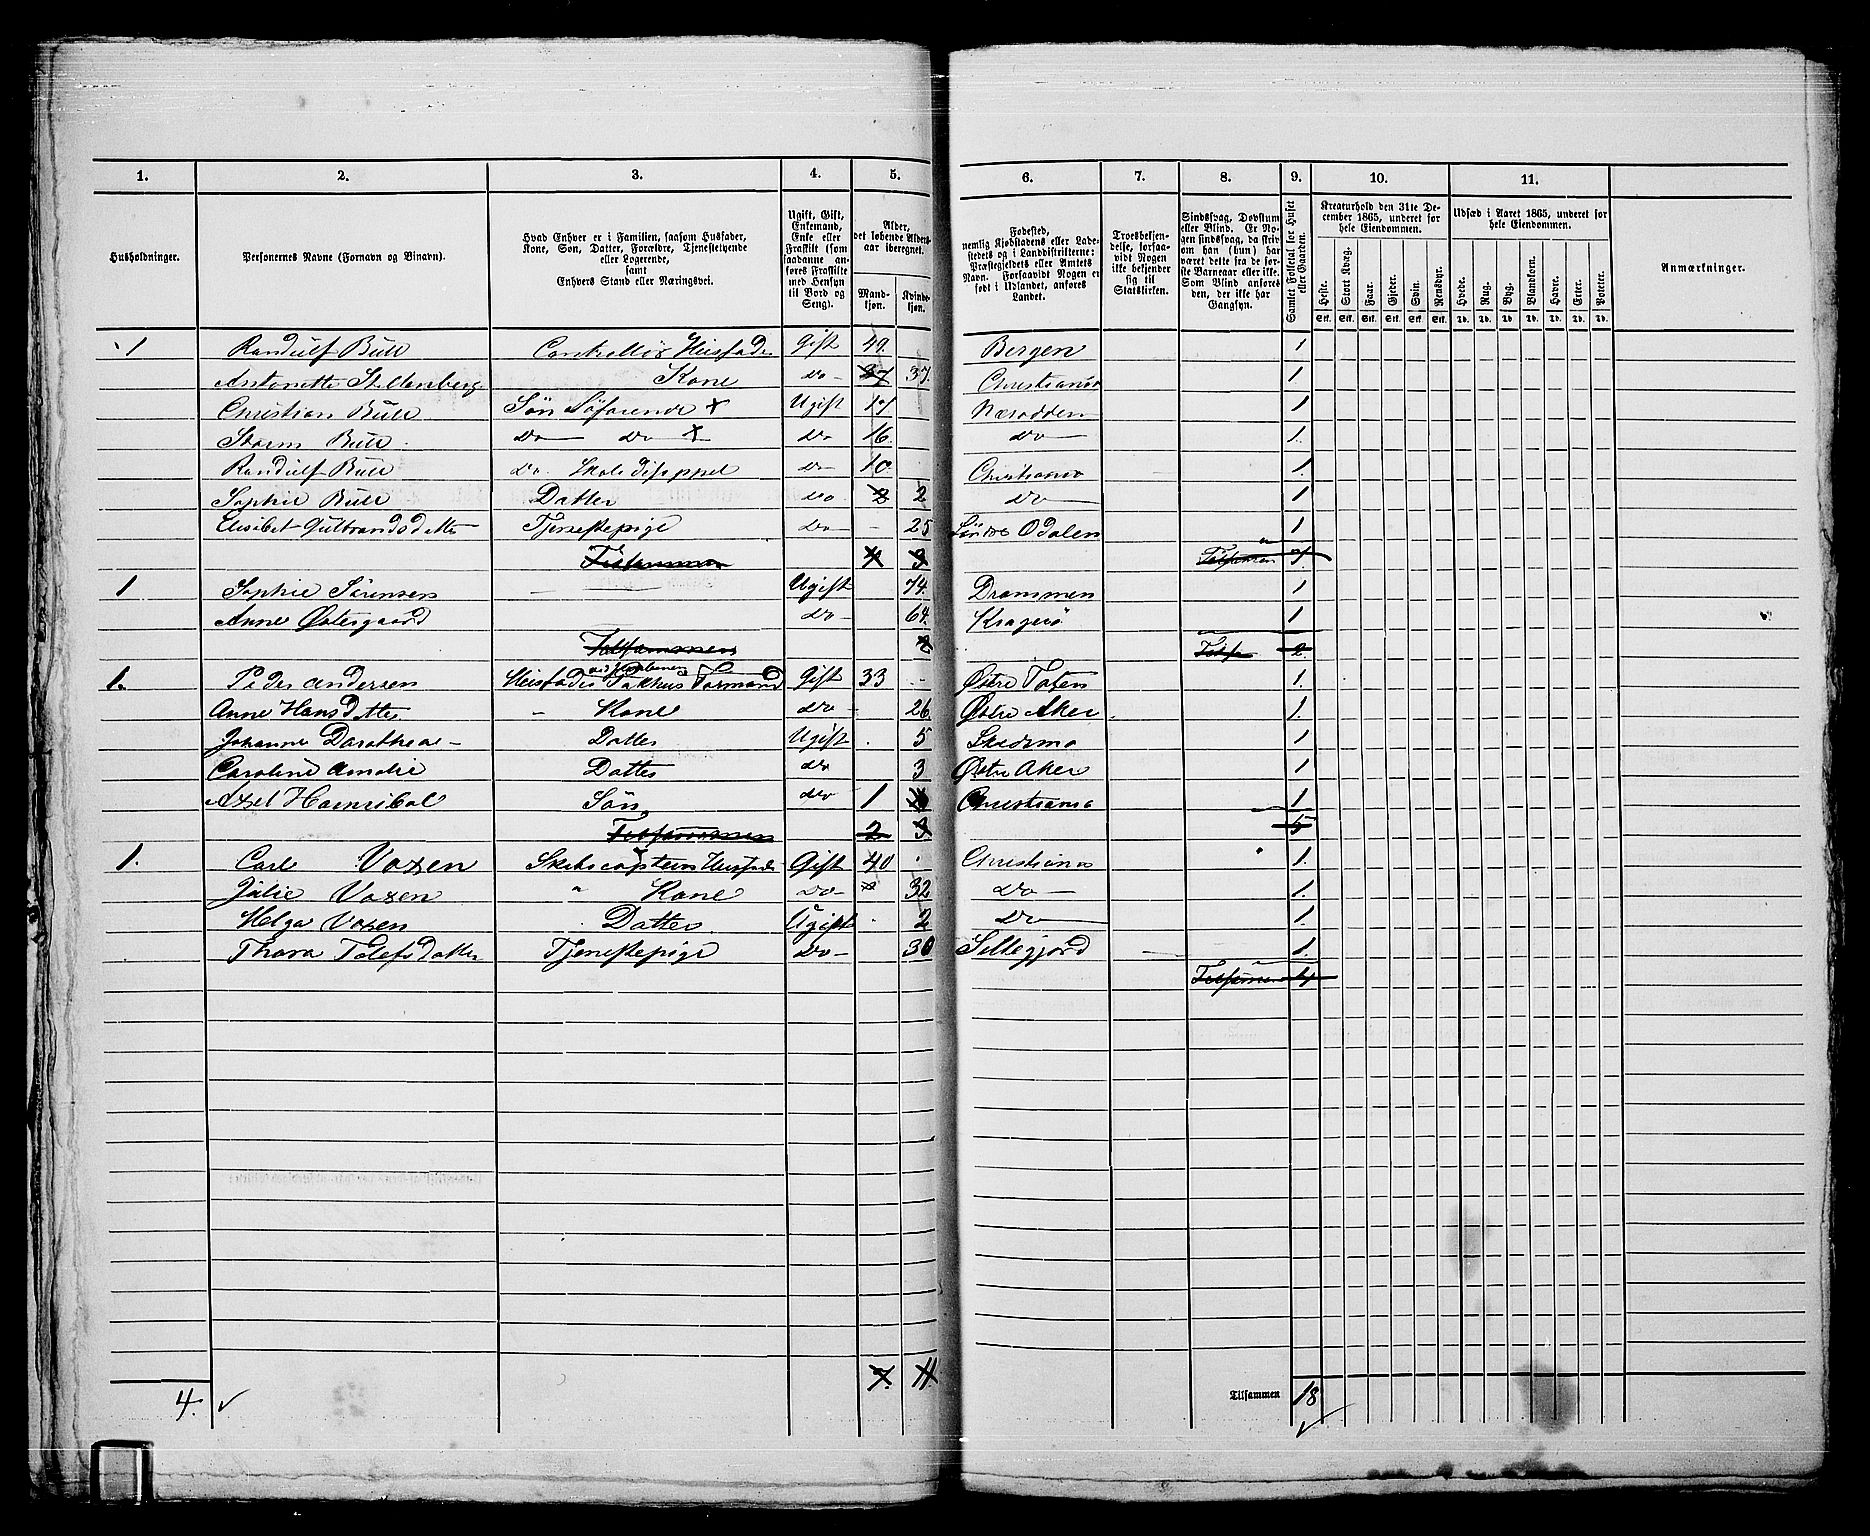 1. 2. 3. 4. 5. 6. 7. 8. 9. 10. 11.
Husholdninger.
Personernes Navne (Fornavn og Binavn).
Hvad Enhver er i Familien, saasom Husfader, Kone, Søn, Datter, Forældre, Tjenestetyende eller Logerende, samt Enhvers Stand eller Næringsvei.
Ugift, Gift, Enkemand, Enke eller Fraskilt (som saadanne anføres Fraskilte med Hensyn til Bord og Seng).
Alder, det løbende Aldersaar iberegnet.
Mandkjøn. Kvindekjøn.
Fødested, nemlig Kjøbstadens eller Ladestedets og i Landdistrikterne: Præstegjeldets eller Amtets Navn. Forsaavidt Nogen er født i Udlandet, anføres Landet.
Troesbekjendelse, forsaavidt Nogen ikke bekjender sig til Statskirken.
Sindssvag, Døvstum eller Blind. Er Nogen sindssvag, da skriv om han (hun) har været dette fra de første Barneaar eller ikke. Som Blind anføres den, der ikke har Gangsyn.
Samlet Folketal for Huset eller Gaarden.
Kreaturhold den 31te December 1865, underet for hele Eiendommen.
Heste. Stort Kvæg. Faar. Gjeder. Svin. Rensdyr.
Stk. Stk. Stk. Stk. Stk. Stk.
Udsæd i Aaret 1865, underet for hele Eiendommen.
Hvede. Rug. Byg. Blandkorn. Havre. Erter. Poteter.
Td. Td. Td. Td. Td. Td. Td.
Anmærkninger.
1 Randulf Bull Controllør Husfader Gift 49. Bergen 1
Antonette Stltenberg Kone do 37 37. Christiania 1
Christian Bull Søn Søfarende x Ugift 17 Næsodden 1
Storm Bull do do x do 16. do 1.
Randulf Bull do. Skole discippel do 10. Christiania 1
Sophie Bull Datter do 2 2 do 1
Elisabet Gulbrandsdatter Tjenestepige do - 25 Søndre Odalen 1
Tilsammen 4 3 Tilsammen 7
1 Sophie Sørensen Ugift 74. Drammen 1
Anne Østergaard do 64. Kragerø 1
Tilsammen 2 Tilsa 2.
1. Peder Andersen Husfader Pakhus Formand Gift 33 Østre Toten 1.
Anne Hansdatter Kone do 26. Østre Aker 1.
Johanne Dorothea - Datter Ugift 5 Skedsmo 1
Caroline Amalie Datter do 3 Østre Aker 1
Axel Hannibal Søn do 1 Christiania 1
Tilsammen 2 3 5
1. Carl Voxen Skibscaptein Husfader Gift 40 Christiania 1.
Julie Voxen " Kone do 32 do 1.
Helga Voxen Datter Ugift 2 do 1.
Thora Tolefsdatter Tjenestepige do 30 Sillegjord 1.
Tilsammen 4
7. 11.
4. Tilsammen 18